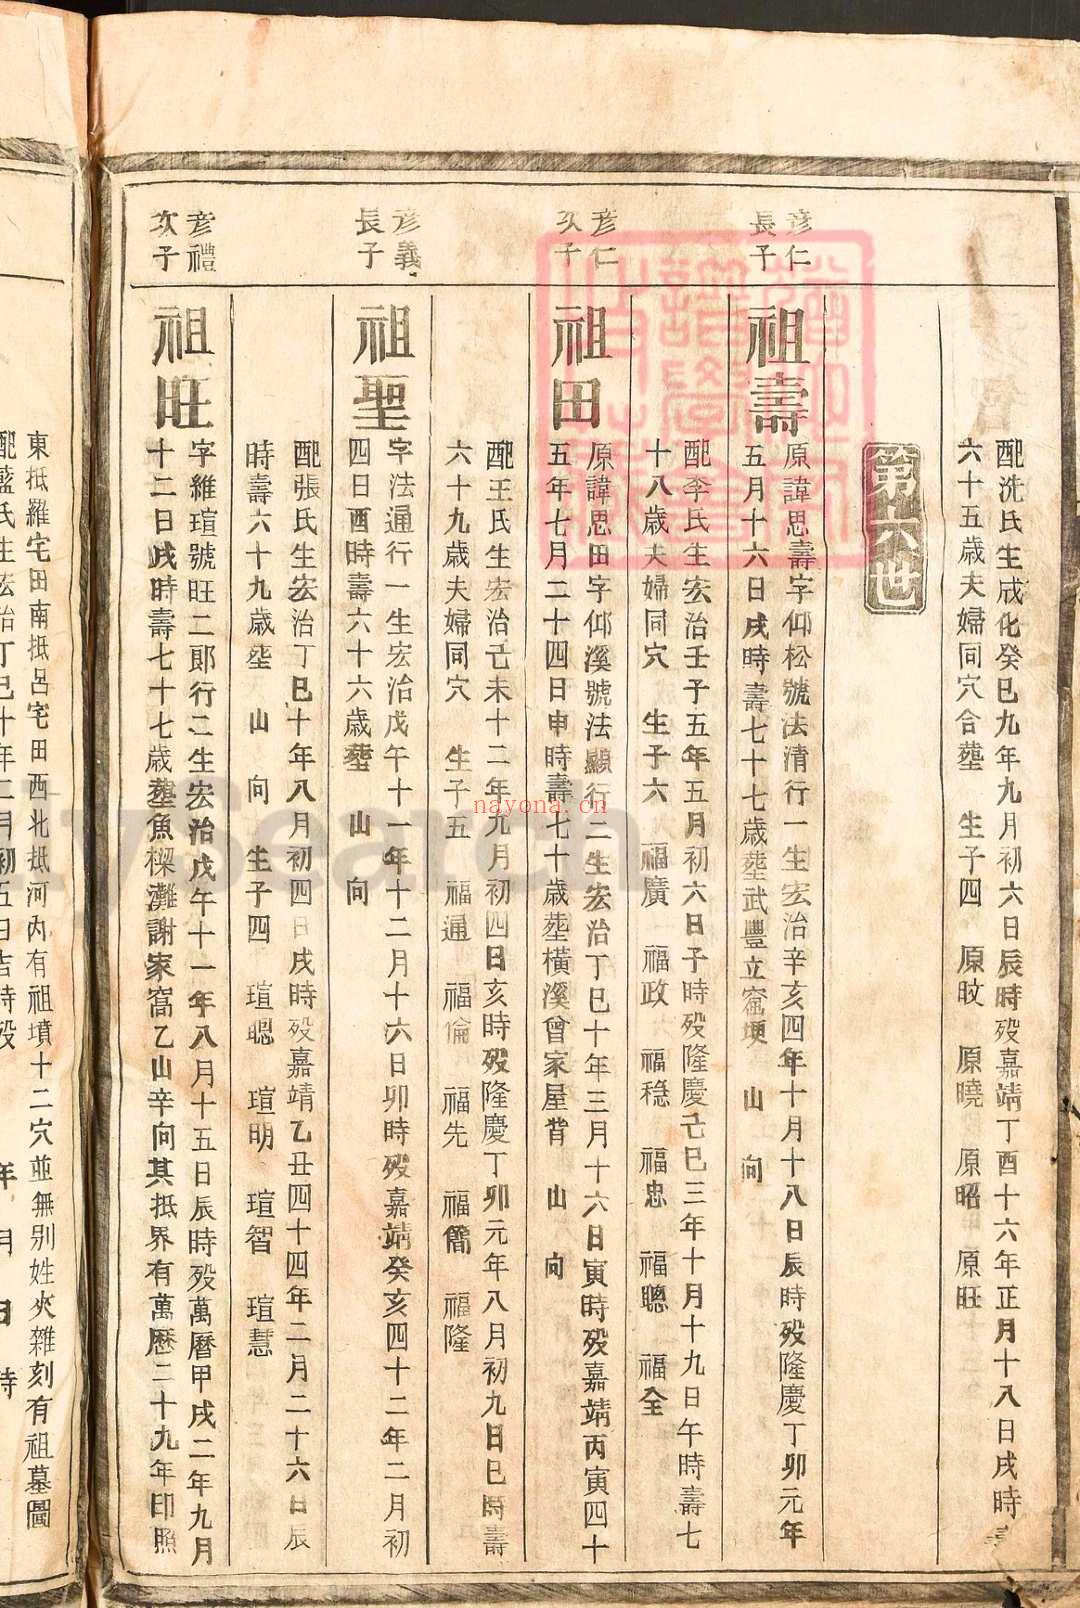 配洗氏生成化癸巳九年九月初六日辰時歿嘉靖丁酉十六年正月十八日戌時壽
六十五歲夫婦同穴合塟 生子四 原旼 原曉 原昭 原旺
第六世
彦仁
長子
祖壽
原諱思壽字仰松號法清行一生宏治辛亥四年十月十八日辰時歿隆慶丁卯元年
五月十六日戌時壽七十七歲塟武豐立窰埂 山 向
配李氏生宏治壬子五年五月初六日子時歿隆慶己巳三年十月十九日午時壽七
十八歲夫婦同穴 生子六 福廣 福政 福稳 福忠 福聰 福全
彦仁
次子
祖田
原諱思田字仰溪號法顯行二生宏治丁巳十年三月十六日寅時歿嘉靖丙寅四十
五年七月二十四日申時壽七十歲塟橫溪曾家屋背 山 向
配王氏生宏治己未十二年九月初四日亥時歿隆慶丁卯元年八月初九日巳時壽
六十九歲夫婦同穴 生子五 福通 福倫 福先 福簡 福隆
彦義
長子
祖聖
字法通行一生宏治戊午十一年十二月十六日卯時歿嘉靖癸亥四十二年二月初
四日酉時壽六十六歲塟 山 向
配張氏生宏治丁巳十年八月初四日戌時歿嘉靖乙丑四十四年二月二十六日辰
時壽六十九歲塟 山 向 生子四 瑄聰 瑄明 瑄智 瑄慧
彦禮
次子
祖旺
字維瑄號旺二郎行二生宏治戊午十一年八月十五日辰時歿萬曆甲戌二年九月
十二日戌時壽七十七歲塟魚樑灘謝家窩乙山辛向其抵界有萬歷二十九年印照
東抵羅宅田南抵呂宅田西北抵河內有祖墳十二穴並無別姓夾雜刻有祖墓圖
配盛氏生宏治丁巳十年二月初五日吉時歿 年 月 日 時
nayona.cn